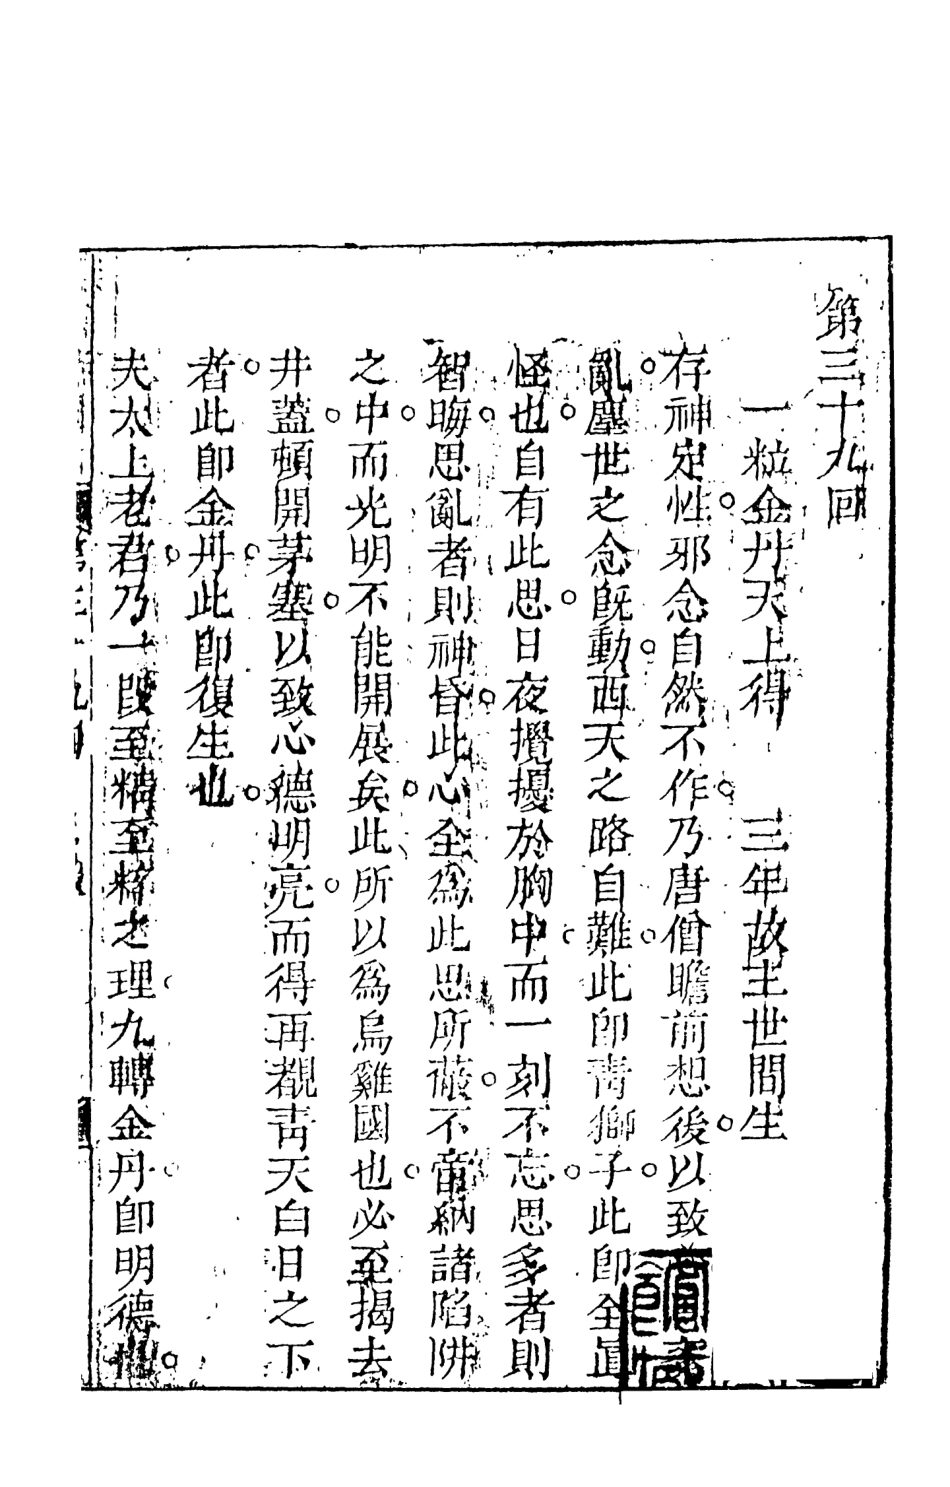 第三十九回
一粒金丹天上得　三年故主世間生
存神定性邪念自然不作乃唐僧瞻前想後以致
亂塵世之念旣動西天之路自難此卽靑獅子此卽全眞
怪也自有此思日夜攪擾於胸中而一刻不忘思多者則
智晦思亂者則神昏此心全爲此思所蔽不啻納諸陷阱
之中而光明不能開展矣此所以爲烏雞國也必至揭去
井蓋頓開茅塞以致心德明亮而得再覩靑天白日之下
者此卽金丹此卽復生也
夫太上老君乃一段至精至粹之理九轉金丹卽明德也